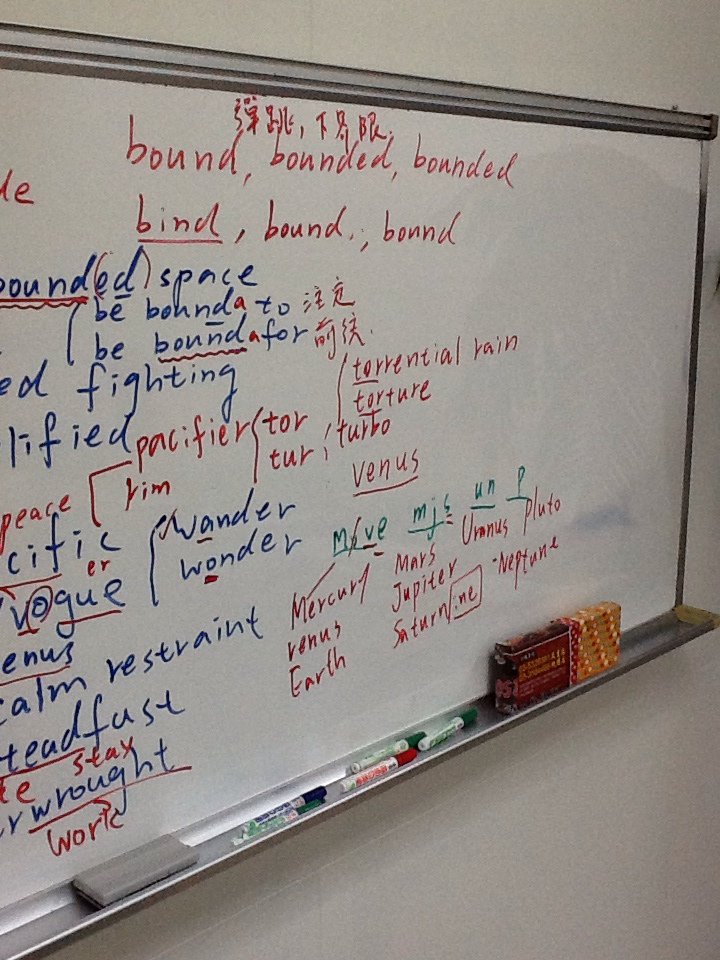 彈跳,下界限.
bound, bounded, bounded
bind, bound, bound
bound(ed) space
be bound to 注定
be bound for 前往
torrential rain
ed fighting
torture
lified
pacifier tor
tur turbo
venus
peace rim
cific wander
er
wonder
mve mjs un p
vogue
Mercury Mars Uranus Pluto
venus Jupiter Neptune
Earth Saturn/ine
enus
calm restraint
steadfast
stay
wrought
work